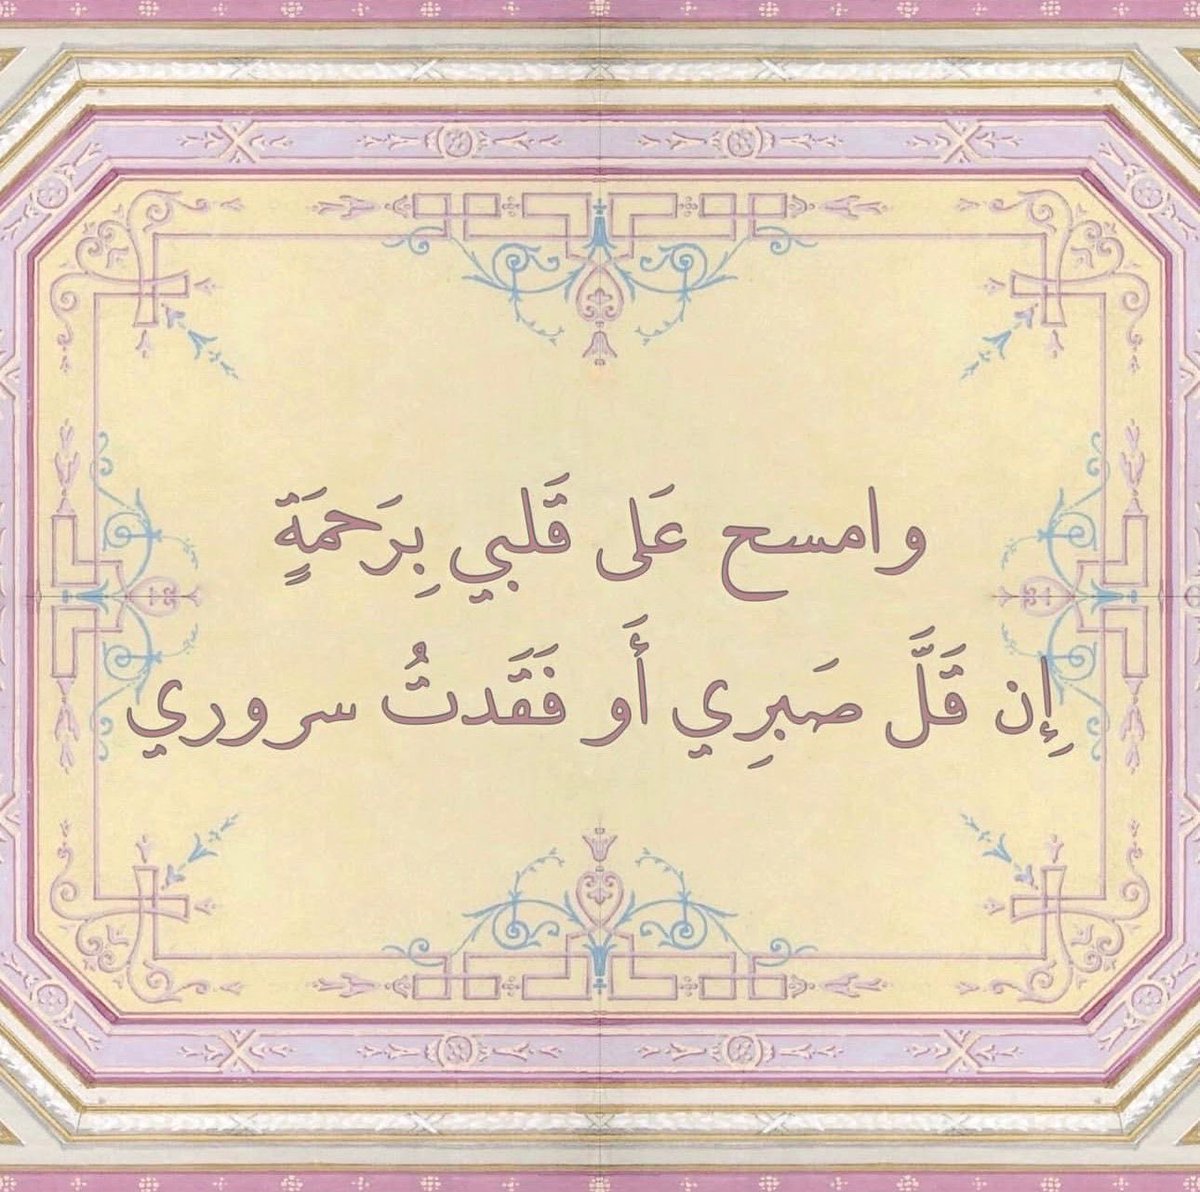 وامسح عَلى قَلبي بِرَحمَةٍ
إِن قَلَّ صَبرِي أَو فَقَدتُ سروري